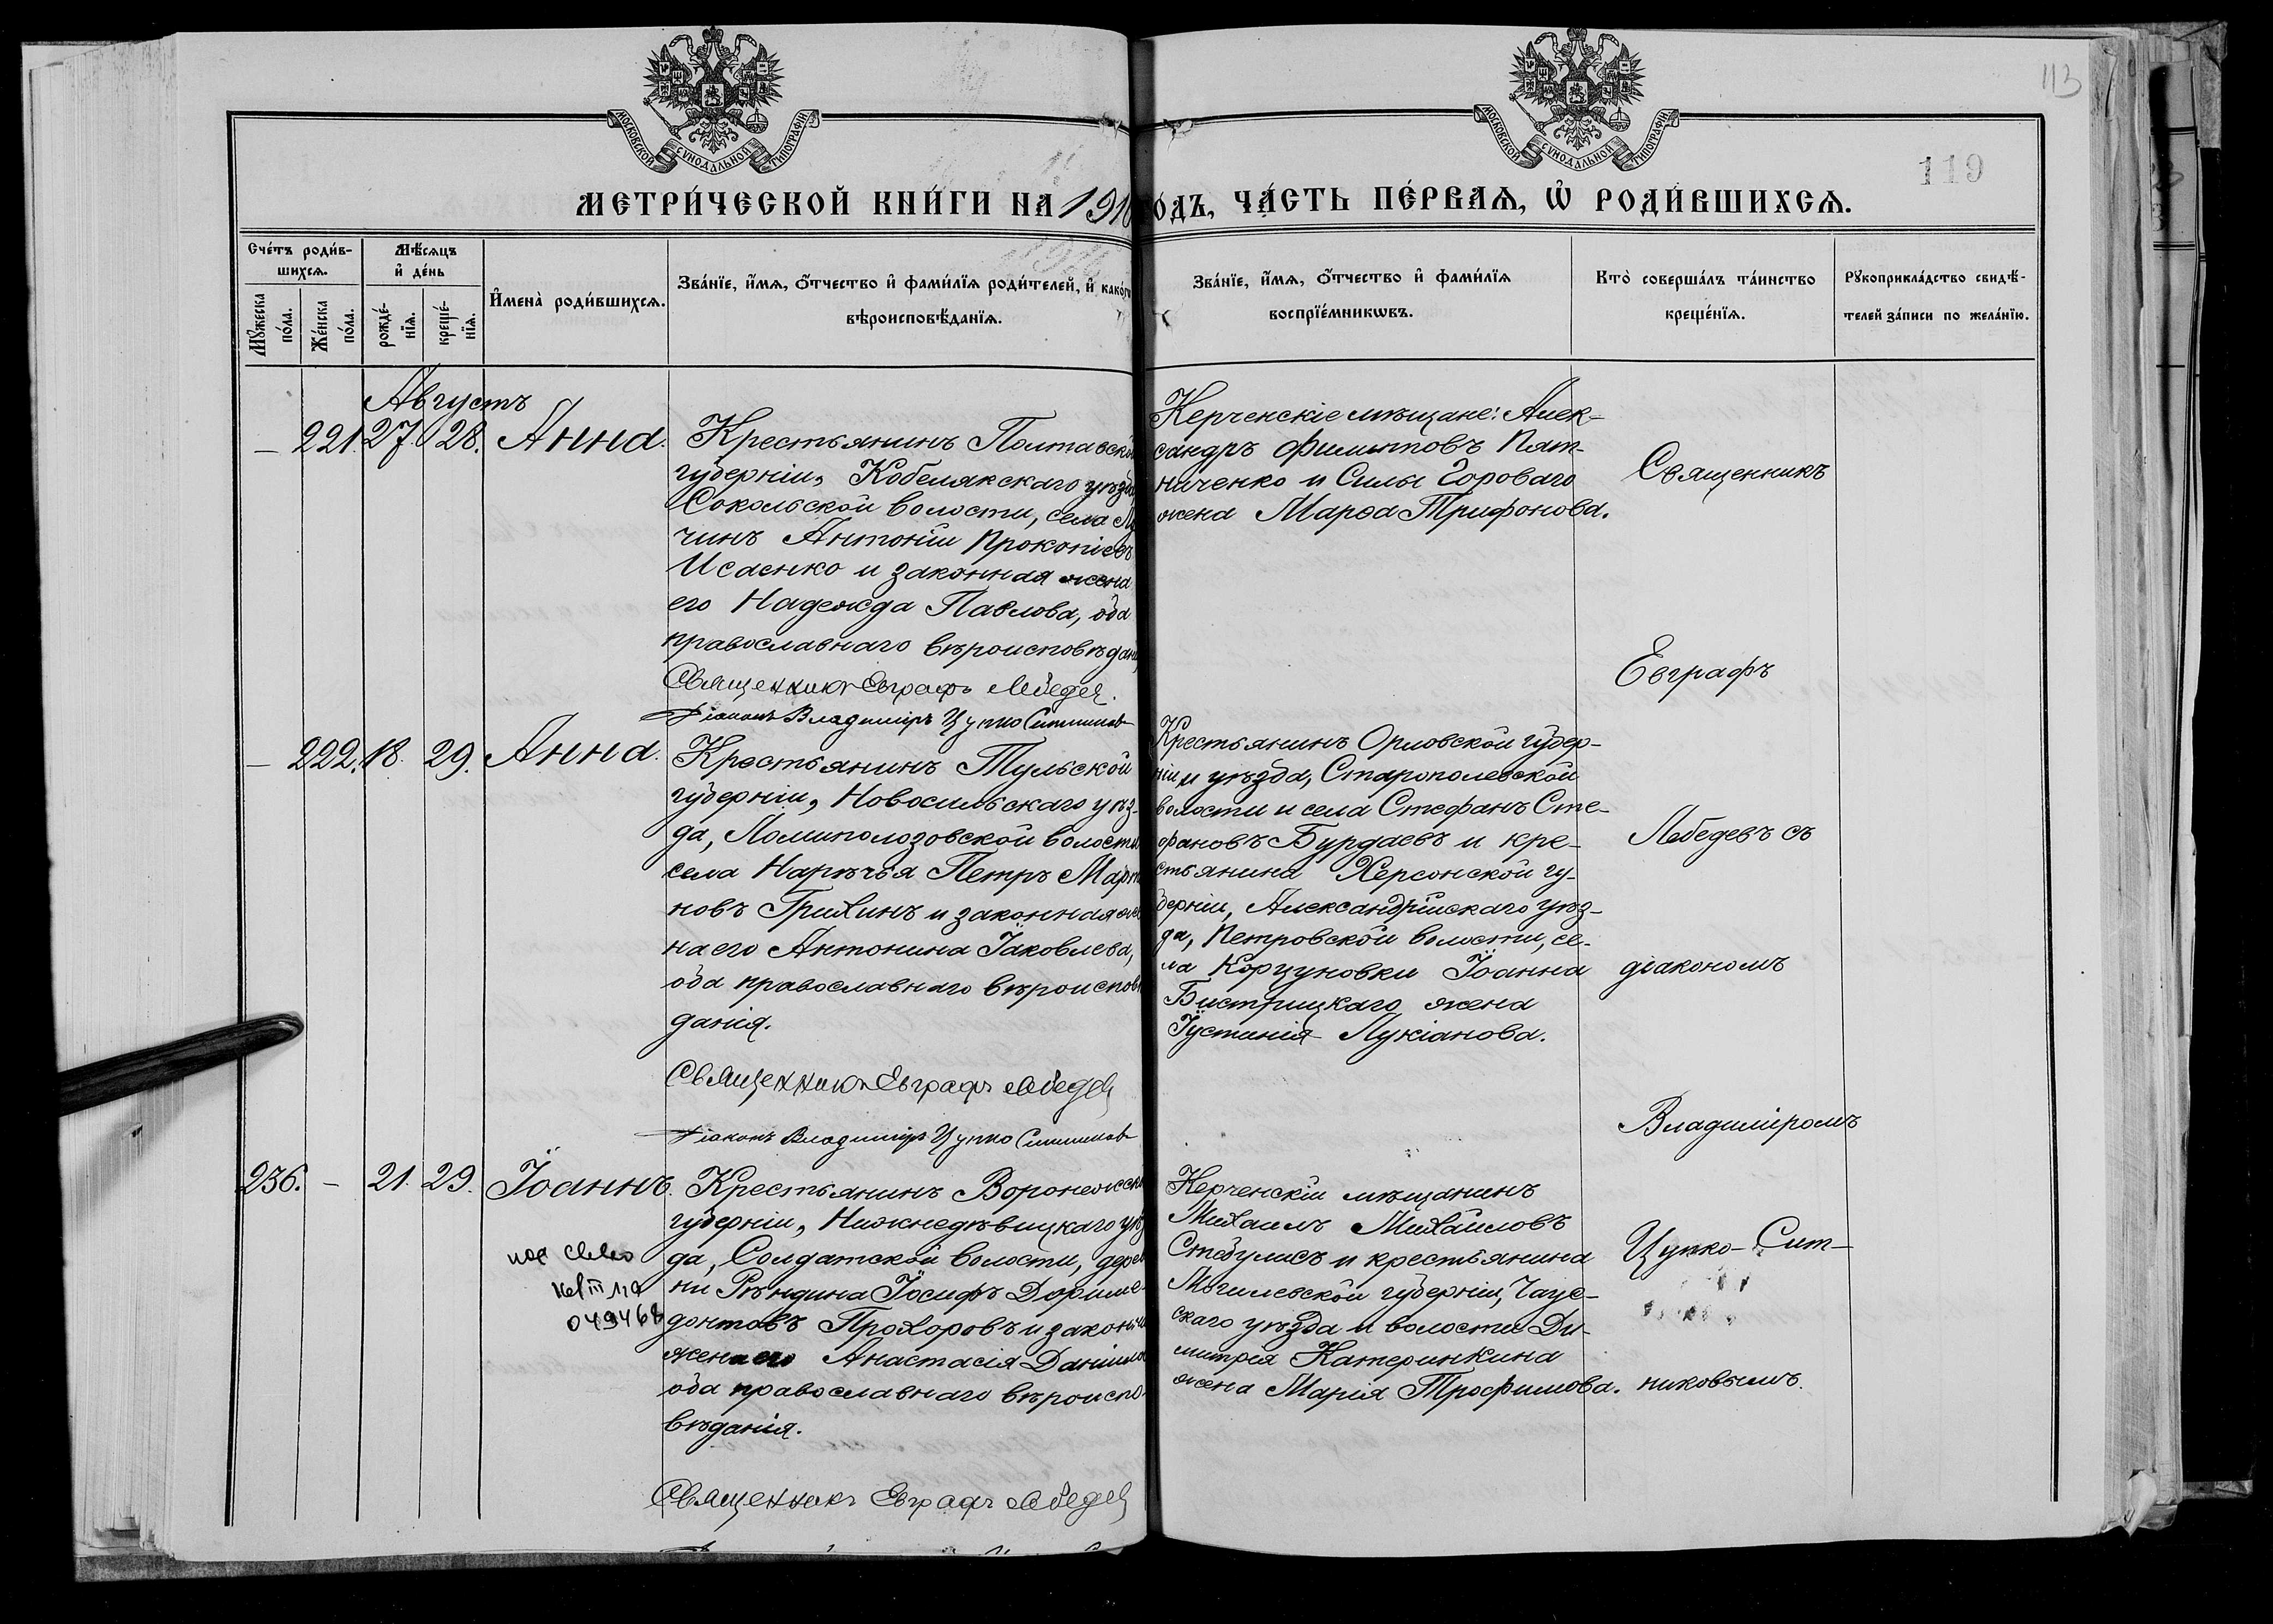 113
119
МОСКОВСКОЙ СѴНОДАЛЬНОЙ ТИПОГРАФІИ
МОСКОВСКОЙ СѴНОДАЛЬНОЙ ТИПОГРАФІИ
МЕТРИ́ЧЕСКОЙ КНИ́ГИ НА 1910 ГОДЪ, ЧА́СТЬ ПЕ́РВАѦ, Ѡ҆ РОДИ́ВШИХСѦ.
Сче́тъ роди́в-
шихсѧ.
Мꙋжеска по́ла.
Же́нска по́ла.
Мѣ́сѧцъ
и҆ де́нь
рожде́-
нїѧ.
креще́-
нїѧ.
И҆мена̀ роди́вшихсѧ.
Зва́нїе, и҆́мѧ, ѻ҆́тчество и҆ фами́лїѧ роди́телей, и҆ како́гѡ
вѣроисповѣ́данїѧ.
Зва́нїе, и҆́мѧ, ѻ҆́тчество и҆ фами́лїѧ
воспрїе́мникѡвъ.
Кто̀ соверша́лъ та́инство
креще́нїѧ.
Рꙋкоприкла́дство свидѣ́-
телей за́писи по жела́нїю.
Августъ
— 221. 27. 28. Анна.
Крестьянинъ Полтавской
губерніи, Кобелякскаго уѣзда
Сокольской волости, села
чинъ Антоній Прокопіевъ
Исаенко и законная жена
его Надежда Павлова, оба
православнаго вѣроисповѣдан
Священникъ Евграфъ Лебедев
Діаконъ Владиміръ Цупко Ситников
Керченскіе мѣщане: Алек-
сандръ Филипповъ Пят-
ниченко и Силы Горового
жена Марѳа Трифонова.
— 222. 18. 29. Анна.
Крестьянинъ Тульской
губерніи, Новосильскаго уѣз-
да, Ломиполозовской волости
села Нарѣчья Петръ Март
новъ Грихинъ и законная же
на его Антонина Іаковлева,
оба православнаго вѣроисповѣ
данія.
Священникъ Евграфъ Лебедев
Діаконъ Владиміръ Цупко Ситников
Крестьянинъ Орловской губер-
ніи и уѣзда, Старополевской
волости и села Стефанъ Сте-
фановъ Бурдаевъ и кре-
стьянина Херсонской гу-
берніи, Александрійскаго уѣз-
да, Петровской волости, се-
ла Корцуновки Іоанна
Бистрицкаго жена
Іустинія Лукіанова.
236. — 21. 29. Іоаннъ.
049468
Крестьянинъ Воронежской
губерніи, Нижнедѣвицкаго уѣз
да, Солдатской волости, дерев
ни Рѣндина Іосифъ Дориме-
донтовъ Прохоровъ и законная
жена его Анастасія Даніилова
оба православнаго вѣроиспо-
вѣданія.
Священникъ Евграфъ Лебедев
Керченскій мѣщанинъ
Михаилъ Михайловъ
Стабулисъ и крестьянина
Могилевской губерніи, Чаус-
скаго уѣзда и волости Ди-
митрія Катеринкина
жена Марія Трофимова.
Священникъ
Евграфъ
Лебедевъ съ
діакономъ
Владиміромъ
Цупко-Сит-
никовымъ.